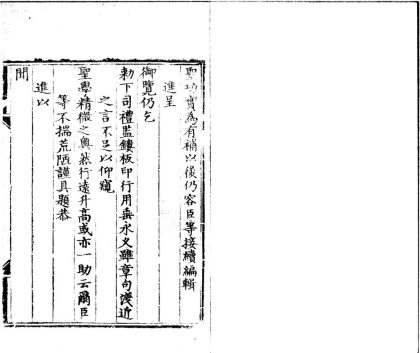 聖功實爲有補以後仍容臣等接續編輯
進呈
御覽仍乞
勑下司禮監鏤板印行用垂永久雖章句淺近
之言不足以仰窺
聖學精微之奥然行遠升高或亦一助云爾臣
等不揣荒陋謹具題恭
進以
聞